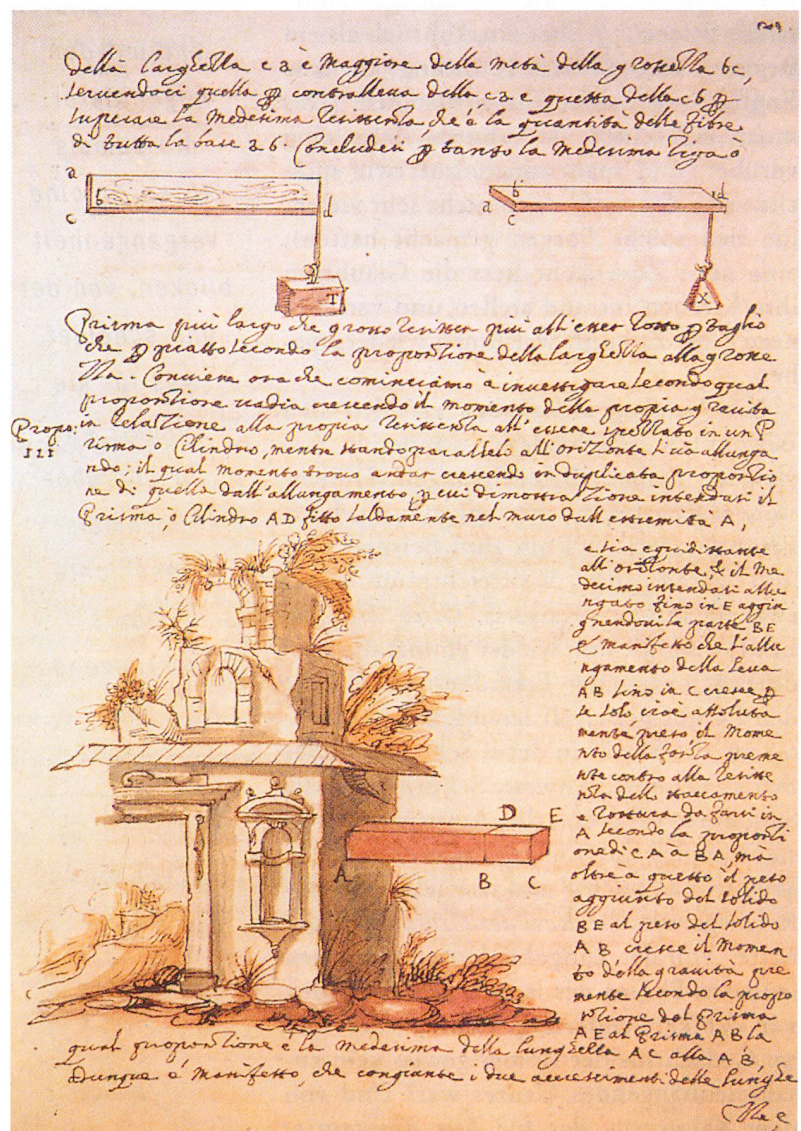 della larghezza ca è maggiore della metà della grossezza bc,
servendoci quella ꝑ contralleva della ca e questa della cb ꝑ
superare la medesima resistenza, che è la quantità delle fibre
di tutta la base ab. Concludesi ꝑ tanto la medesima riga ò
a
c
b
d
T
a
b
c
d
X
Prisma più largo che grosso resister più all'esser rotto ꝑ taglio
che ꝑ piatto secondo la proportione della larghezza alla grosse
zza. Conviene ora che cominciamo à investigare secondo qual
proportione vadia crescendo il momento della propia gravità
Propo:
III
in relazione alla propia resistenza all'essere spezzato in un P
risma ò Cilindro, mentre stando parallelo all'orizonte si va allunga
ndo; il qual momento trovo andar crescendo in duplicata proportio
ne di quella dell'allungamento, ꝑ cui dimostrazione intendasi il
Prisma, ò Cilindro AD fitto saldamente nel muro dall'estremità A,
e sia equidistante
all'orizonte, & il me
desimo intendasi allu
ngato fino in E aggiu
gnendovi la parte BE
è manifesto che l'allu
ngamento della leva
AB sino in C cresce ꝑ
se solo cioè assoluta
mente preso il mome
nto della forza preme
nte contro alla resiste
nza dello staccamento
e rottura da farsi in
A secondo la proporti
one di CA à BA, mà
oltre à questo il peso
aggiunto del solido
BE al peso del solido
AB cresce il momen
to della gravità pre
mente secondo la propo
rtione del Prisma
AE al Prisma AB la
D
E
A
B
C
qual proportione è la medesima della lunghezza AC alla AB
Dunque è manifesto, che congiunte i due accrescimenti delle lunghe
zze, e